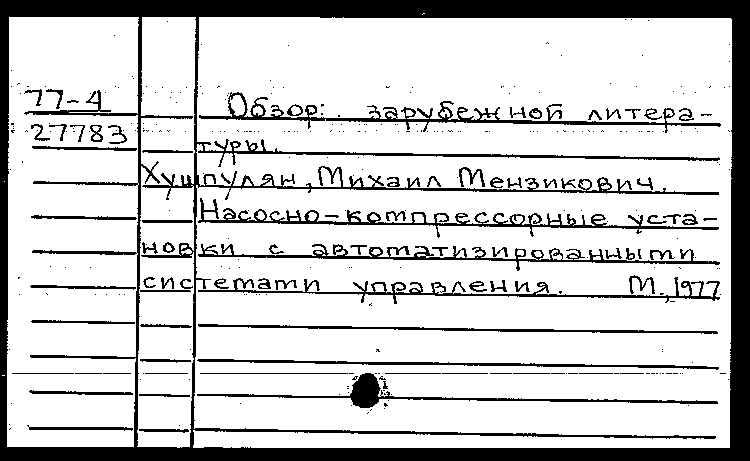 77-4 Обзор: зарубежной литера-
27783 туры.
Хушпулян, Михаил Мензикович.
Насосно-компрессорные уста-
новки с автоматизированными
системами управления. М., 1977